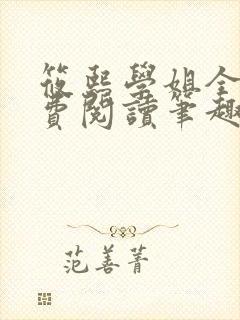 筱熙學姐全
費閱讀筆趣
范善菁